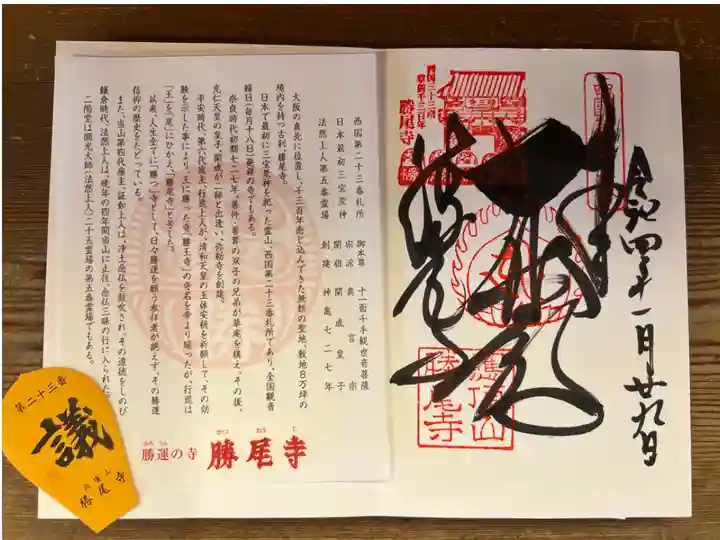 令和四年一月廿九日
四国三十三所
草創千三百年
勝尾寺
奉拝
勝尾寺
應頂山
勝尾寺
西国第二十三番札所
日本最初三宝荒神
法然上人第五番霊場
御本尊 十一面千手観世音菩薩
宗派 真言宗
開祖 開成皇子
創建 神亀七二七年
大阪の真北に位置し、千三百年念じ込んできた無類の聖地、敷地8万坪の
境内を持つ古刹、勝尾寺。
日本で最初に三宝荒神を祀った霊山、西国第二十三番札所であり、全国観音
縁日(毎月十八日)発祥の寺でもある。
奈良時代初期七二七年、善仲・善算の双子の兄弟が草庵を構え、その後、
光仁天皇の皇子、開成が二師と出逢い、弥勒寺を創建。
平安時代、第六代座主、行巡上人が、清和天皇の玉体安穏を祈願して、その効
験を示した事により、王に勝った寺、「勝王寺」の寺名を帝より賜ったが、行巡は
「王」を「尾」にひかえ、「勝尾寺」と号した。
以来、人生全てに「勝つ」寺として、日々勝運を願う参拝者が絶えず、その勝運
信仰の歴史をたどっている。
また、当山第四代座主、証如上人は、浄土念仏を鼓吹され、その遺徳をしのび
鎌倉時代、法然上人は、晩年の四年間当山に止住、念仏三昧の行に入られた。
二階堂は圓光大師(法然上人)二十五霊場の第五番霊場でもある。
かち うん かつ おう じ
勝運の寺 勝尾寺
第二十三番
議
應頂山
勝尾寺